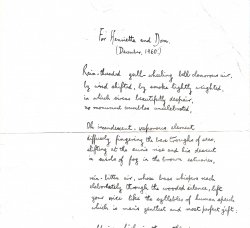 For Henrietta and Dom.
(December, 1960)
Rain-threaded gull-whirling bell-clamorous air,
by wind shifted, by smoke lightly weighted,
in which sirens beautifully despair,
no monument crumbles uncelebrated,
Oh incandescent, vaporous element
diffusely fingering the
shifting at the sun's rise and his descent
in swirls of fog in the brown estuaries,
air, whose base whispers reach
elaborately through the wooded silence, lift
your voice like the syllables of human speech
which is man's gentlest and most perfect gift,